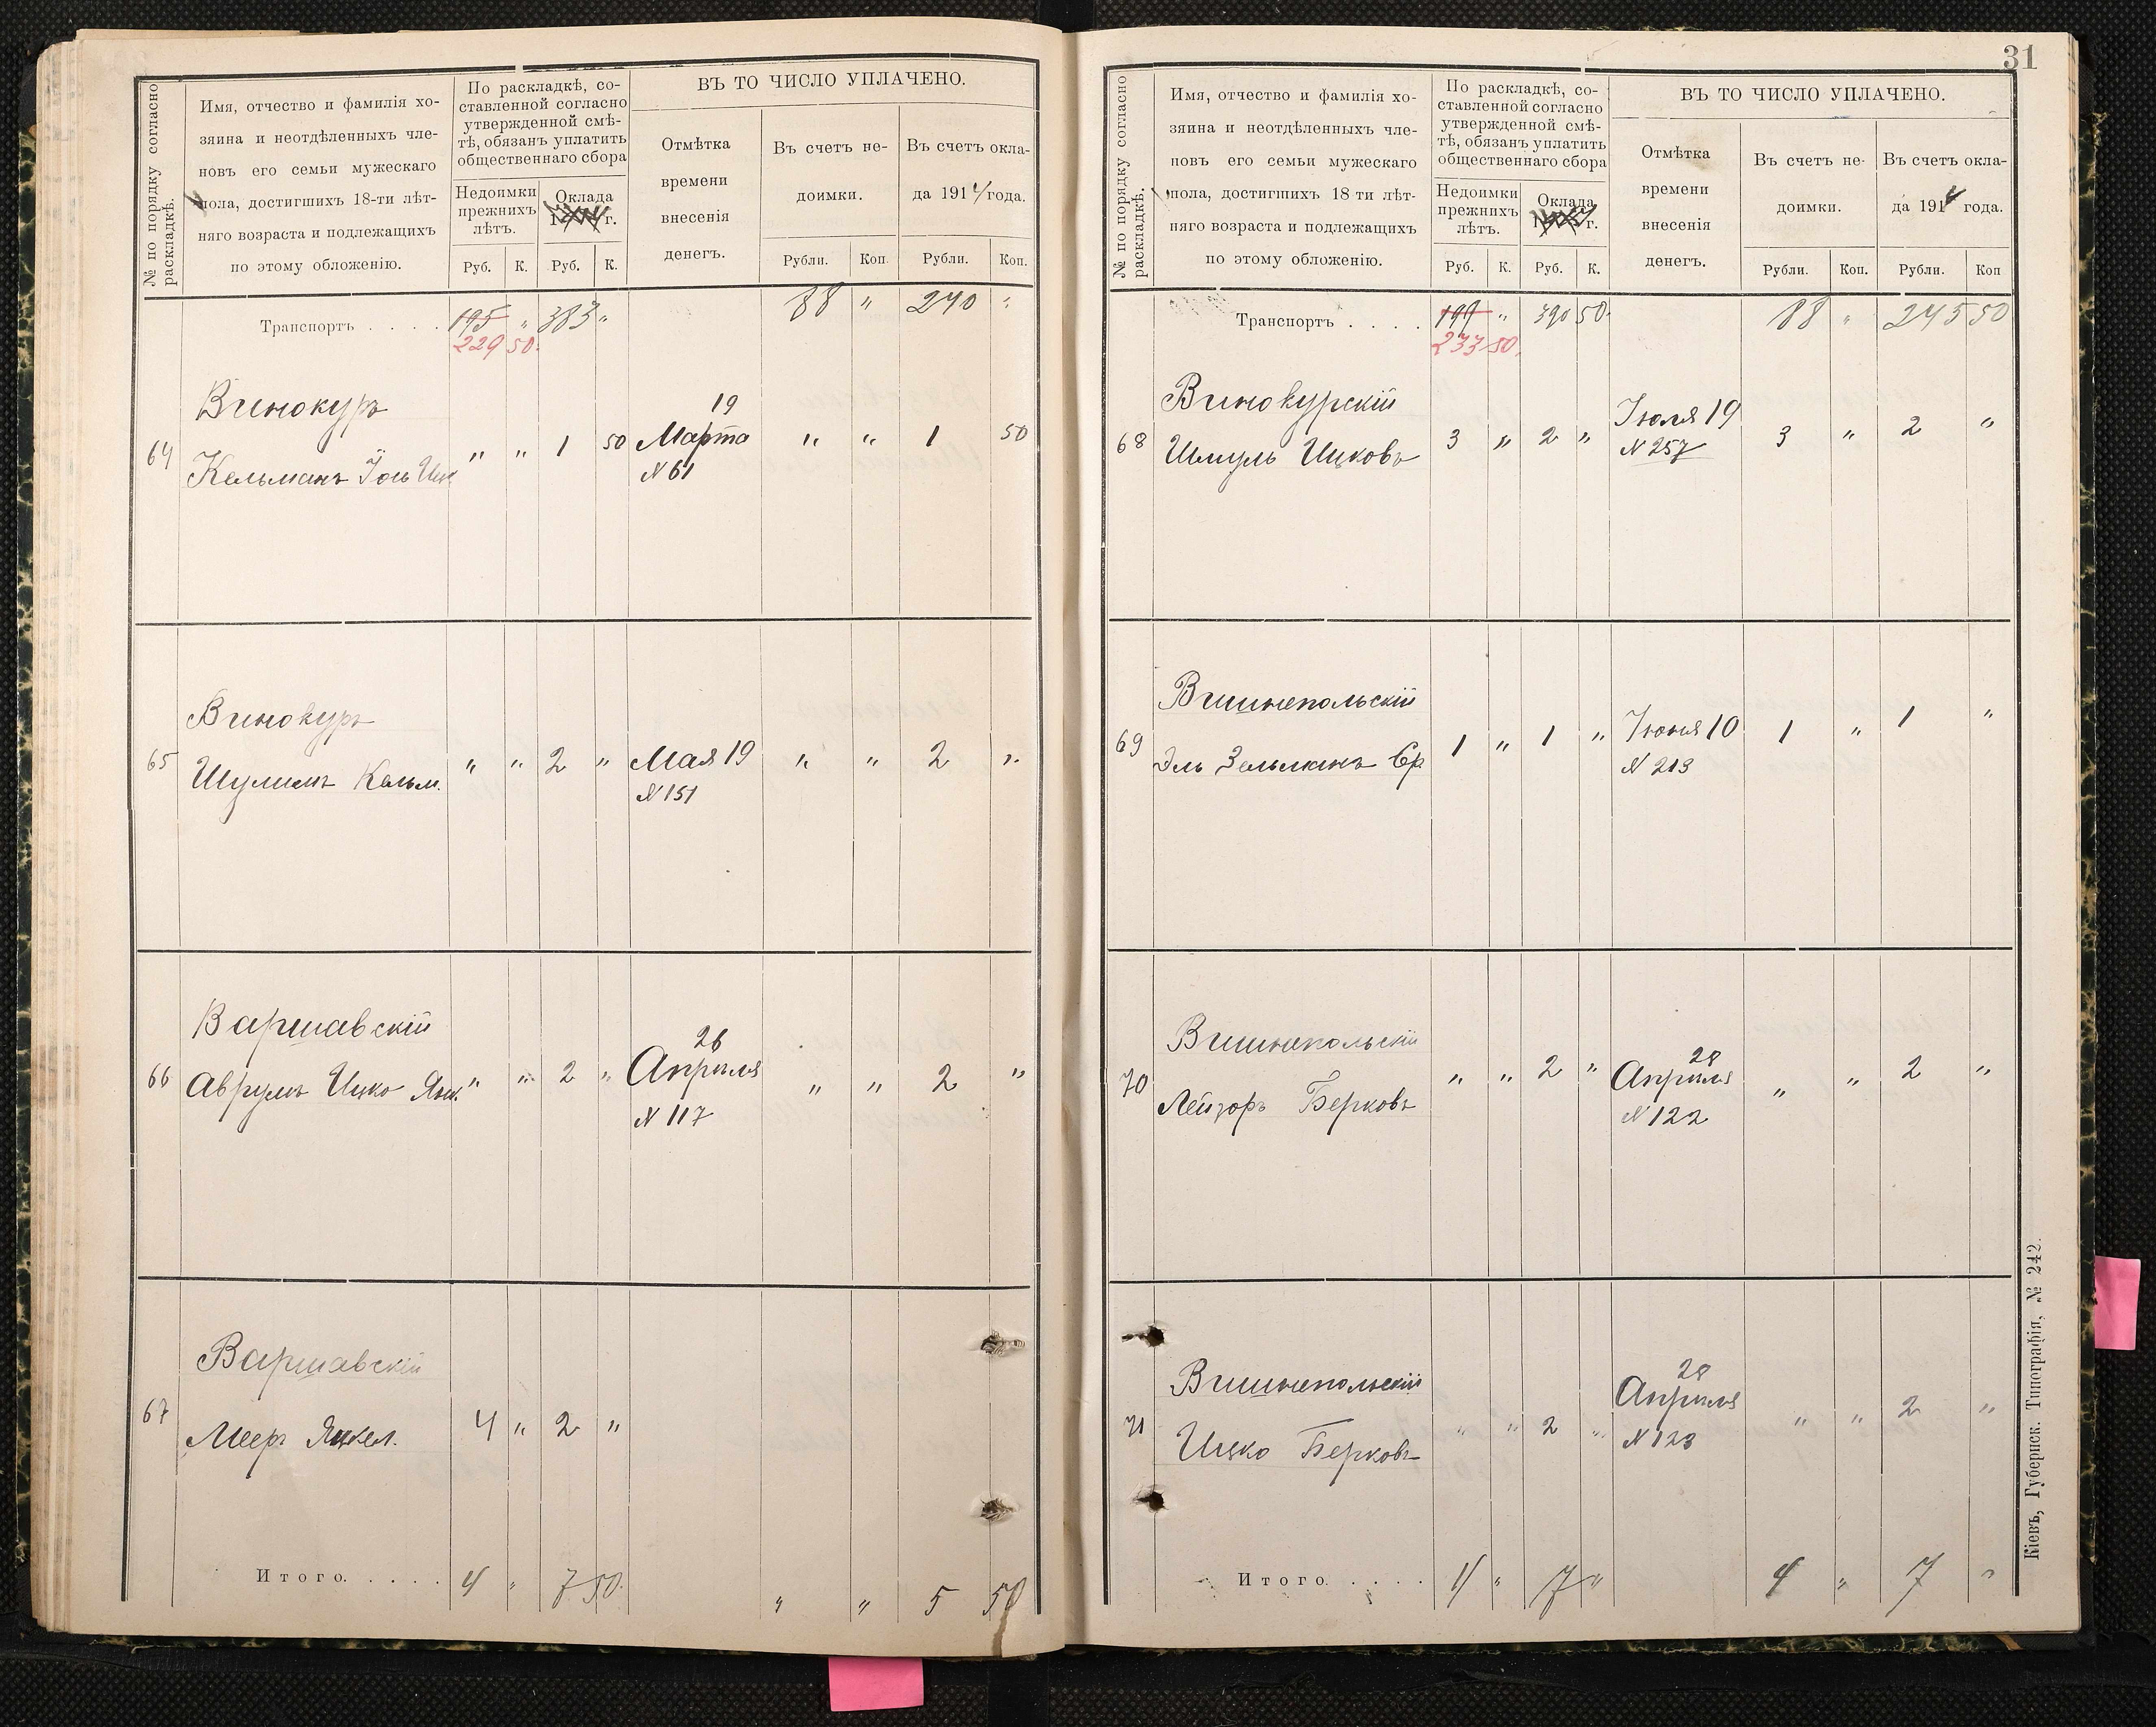 31
№ по порядку согласно
раскладкѣ.
Имя, отчество и фамилія хо-
зяина и неотдѣленныхъ чле-
новъ его семьи мужескаго
пола, достигшихъ 18-ти лѣт-
няго возраста и подлежащихъ
по этому обложенію.
По раскладкѣ, со-
ставленной согласно
утвержденной смѣ-
тѣ, обязанъ уплатить
общественнаго сбора
Недоимки
прежнихъ
лѣтъ.
Оклада
г.
Руб. К. Руб. К.
ВЪ ТО ЧИСЛО УПЛАЧЕНО.
Отмѣтка
времени
внесенія
денегъ.
Въ счетъ не-
доимки.
Рубли. Коп.
Въ счетъ окла-
да 1914 года.
Рубли. Коп.
Транспортъ . . . . 195 " 383 " 88 " 240 "
229 50.
Винокуръ
64 Кельманъ Іоль Ицк " " 1 50 19 Марта " " 1 50
№ 61
Винокуръ
65 Шулимъ Кельм. " " 2 " Мая 19 " " 2 "
№ 151
Варшавскій
66 Аврумъ Ицко Янк. " " 2 " 26 Апрѣля " " 2 "
№ 117
Варшавскій
67 Мееръ Янкел. 4 " 2 "
Итого. . . . . 4 " 7 50. " " 5 50
№ по порядку согласно
раскладкѣ.
Имя, отчество и фамилія хо-
зяина и неотдѣленныхъ чле-
новъ его семьи мужескаго
пола, достигшихъ 18 ти лѣт-
няго возраста и подлежащихъ
по этому обложенію.
По раскладкѣ, со-
ставленной согласно
утвержденной смѣ-
тѣ, обязанъ уплатить
общественнаго сбора
Недоимки
прежнихъ
лѣтъ.
Оклада
г.
Руб. К. Руб. К.
ВЪ ТО ЧИСЛО УПЛАЧЕНО.
Отмѣтка
времени
внесенія
денегъ.
Въ счетъ не-
доимки.
Рубли. Коп.
Въ счетъ окла-
да 1914 года.
Рубли. Коп
Транспортъ . . . . 199 " 390 50. 88 " 245 50
233 50.
Винокурскій
68 Шмуль Ицковъ 3 " 2 " Іюля 19 3 " 2 "
№ 257
Вишнепольскій
69 Эль Зельманъ Ср 1 " 1 " Іюня 10 1 " 1 "
№ 213
Вишнепольскій
70 Лейзоръ Берковъ " " 2 " 28 Апрѣля " " 2 "
№ 122
Вишнепольскій
71 Ицко Берковъ " " 2 " 28 Апрѣля " " 2 "
№ 123
Итого. . . . . 4 " 7 " 4 " 7 "
Кіевъ, Губернск. Типографія, № 242.